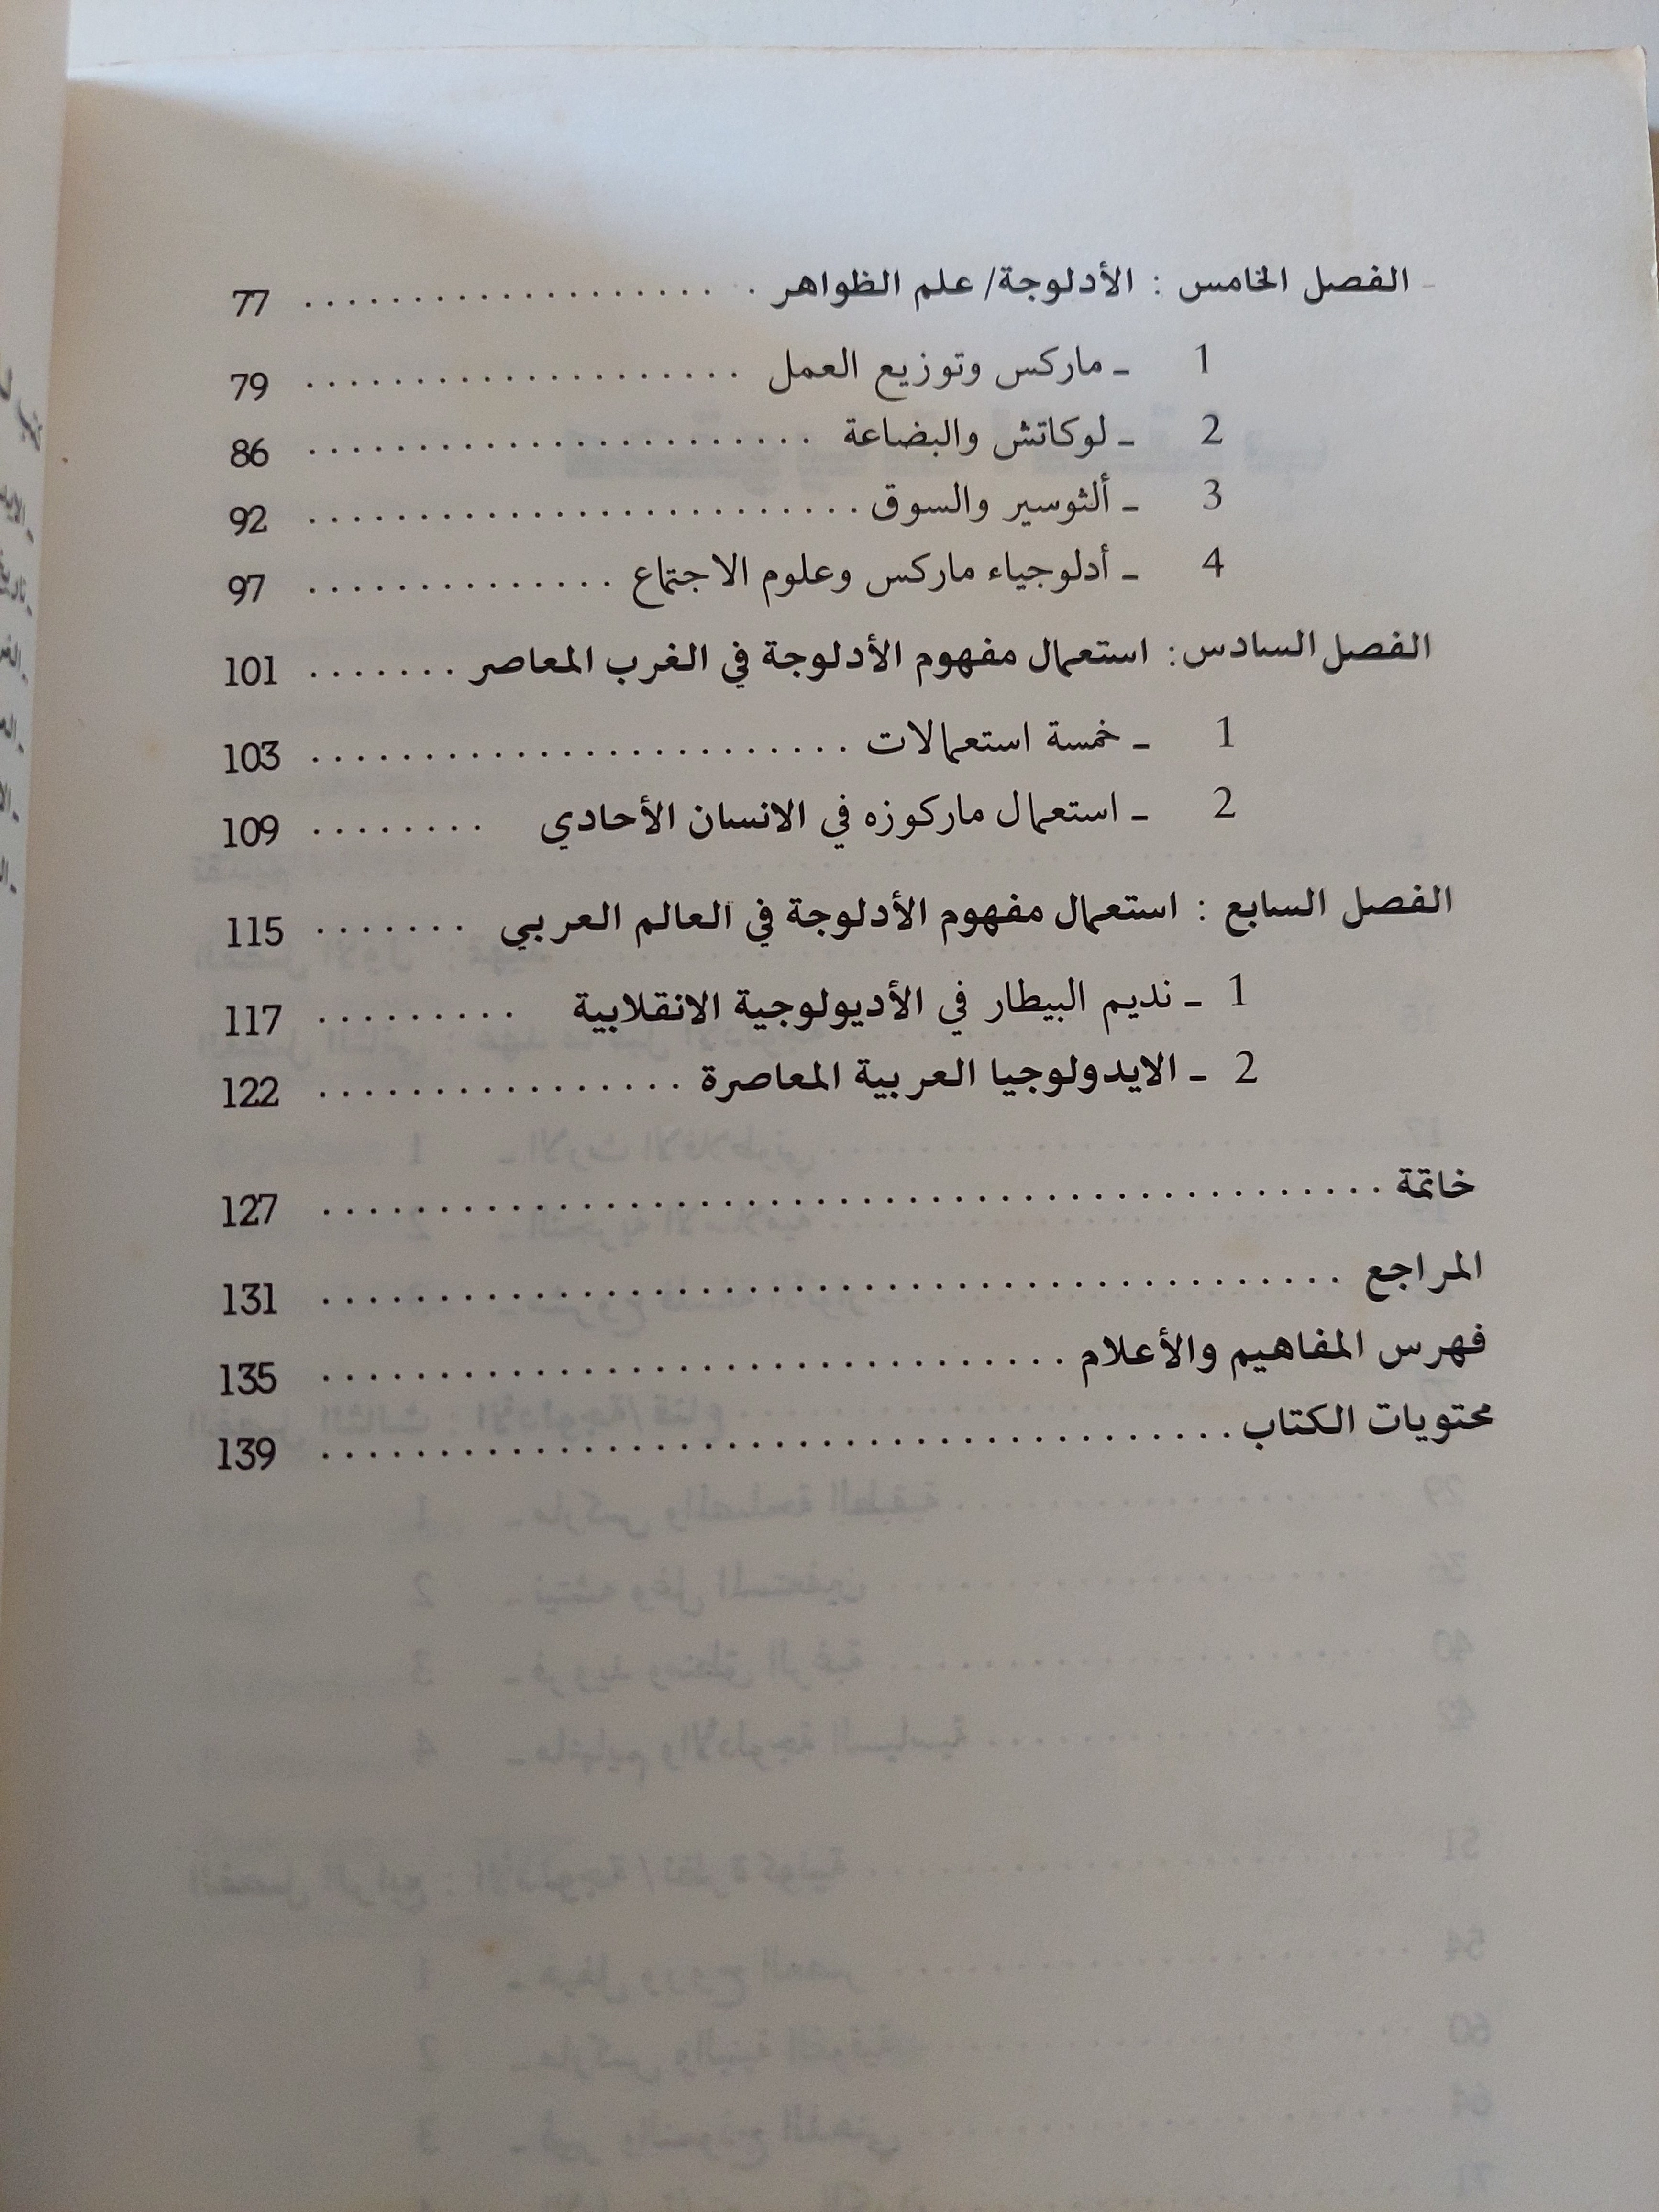 الفصل الخامس : الأدلوجة/ علم الظواهر . . . . . . . . . . . . . . . . . . . . 77
1 ـ ماركس وتوزيع العمل . . . . . . . . . . . . . . . . . . . . 79
2 ـ لوكاتش والبضاعة . . . . . . . . . . . . . . . . . . . . . . . 86
3 ـ ألثوسير والسوق . . . . . . . . . . . . . . . . . . . . . . . . . 92
4 ـ أدلوجياء ماركس وعلوم الاجتماع . . . . . . . . . . . . . . 97
الفصل السادس : استعمال مفهوم الأدلوجة في الغرب المعاصر . . . . . . . 101
1 ـ خمسة استعمالات . . . . . . . . . . . . . . . . . . . . . . . . 103
2 ـ استعمال ماركوزه في الانسان الأحادي . . . . . . . . 109
الفصل السابع : استعمال مفهوم الأدلوجة في العالم العربي . . . . . . . 115
1 ـ نديم البيطار في الأديولوجية الانقلابية . . . . . . . . . 117
2 ـ الايدولوجيا العربية المعاصرة . . . . . . . . . . . . . . . . 122
خاتمة . . . . . . . . . . . . . . . . . . . . . . . . . . . . . . . . . . . . . . . . . . . . . . 127
المراجع . . . . . . . . . . . . . . . . . . . . . . . . . . . . . . . . . . . . . . . . . . . . 131
فهرس المفاهيم والأعلام . . . . . . . . . . . . . . . . . . . . . . . . . . . . . . . . 135
محتويات الكتاب . . . . . . . . . . . . . . . . . . . . . . . . . . . . . . . . . . . . . . . 139